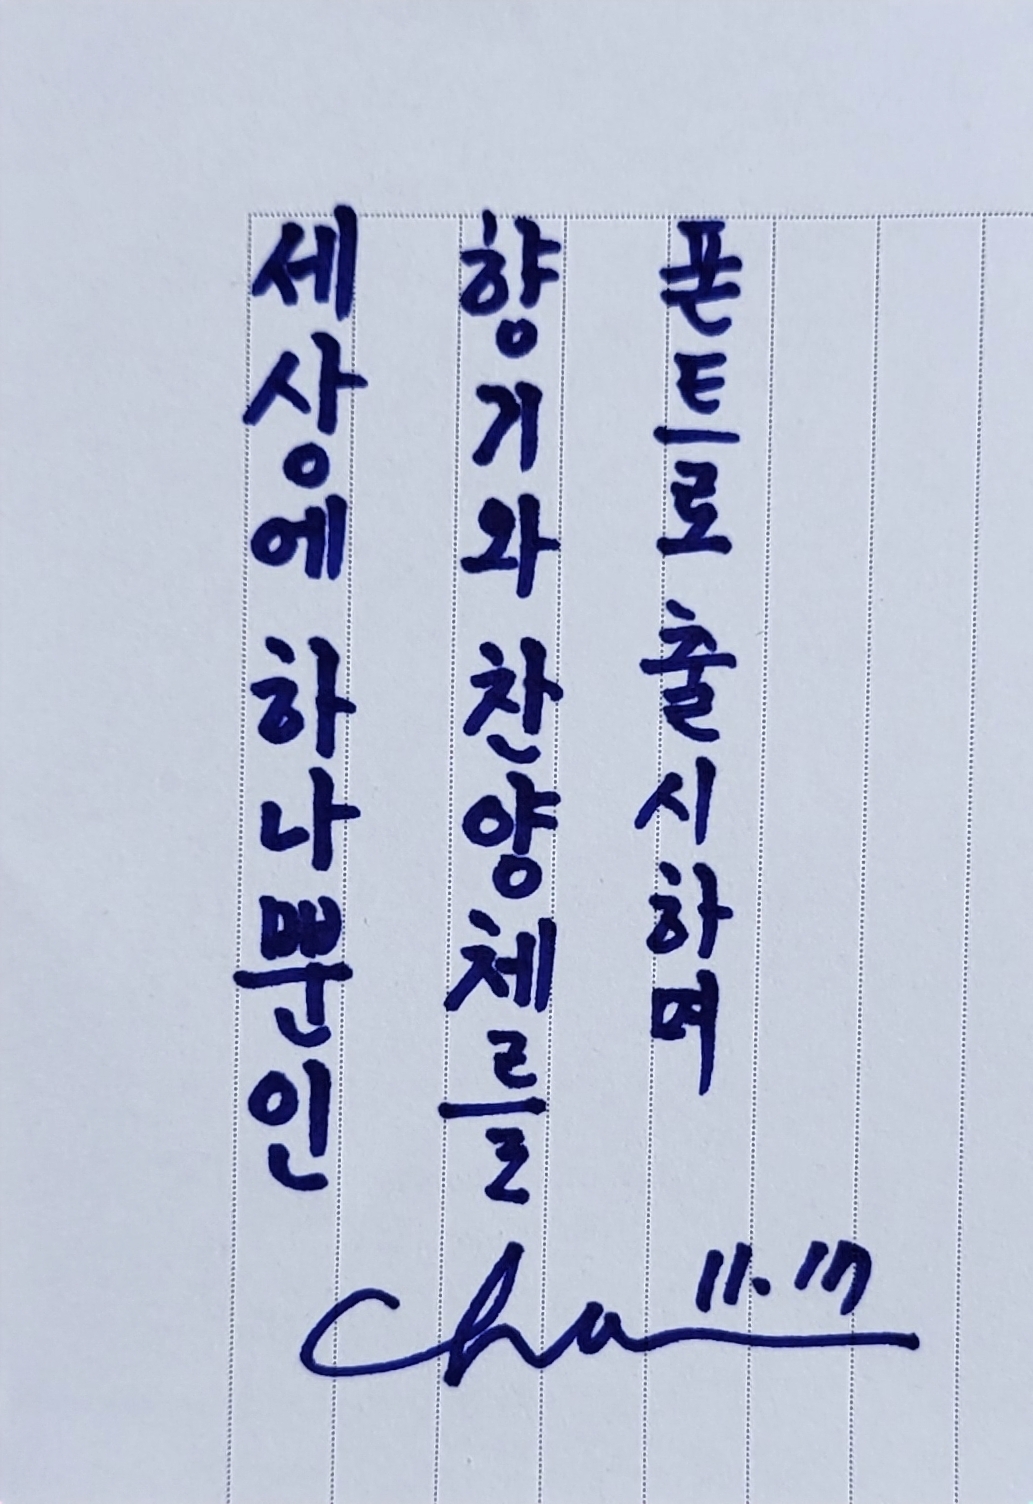 세상에 하나뿐인
향기와 찬양체를
폰트로 출시하며
11.17
Cha